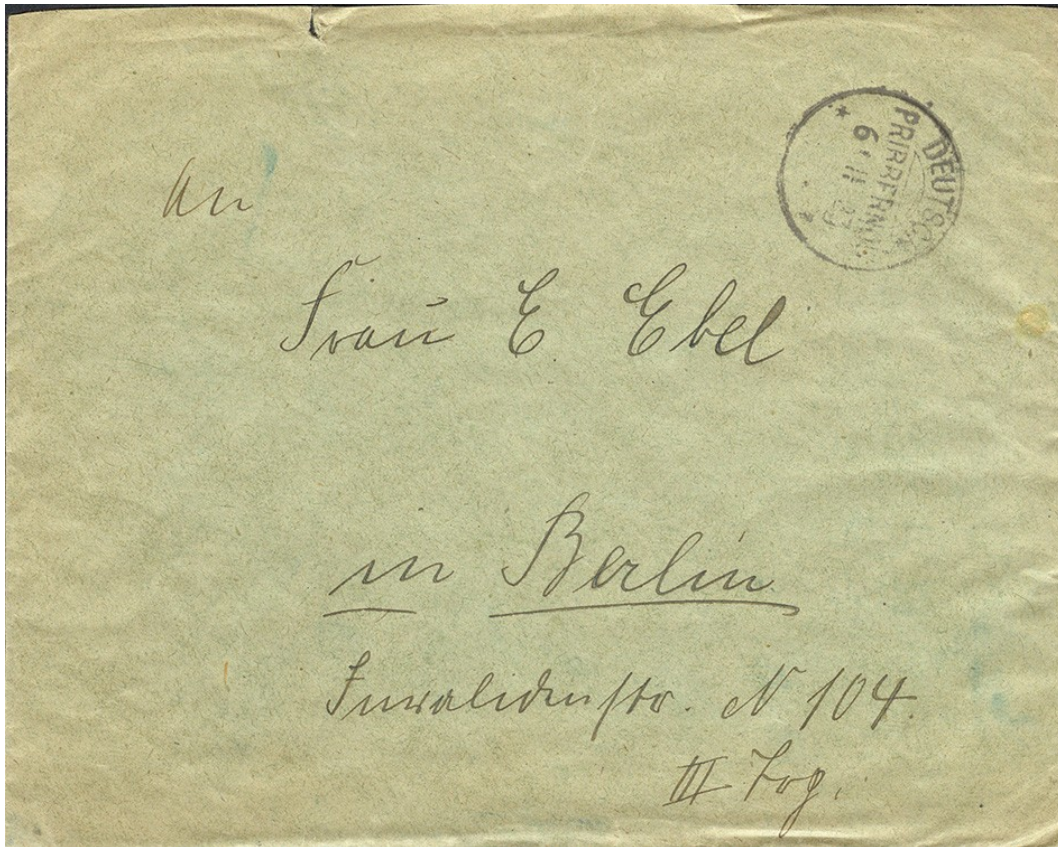 DEUTSCH
An
Frau E Ebel
in Berlin
Invalidenstr. N 104.
III Trp.